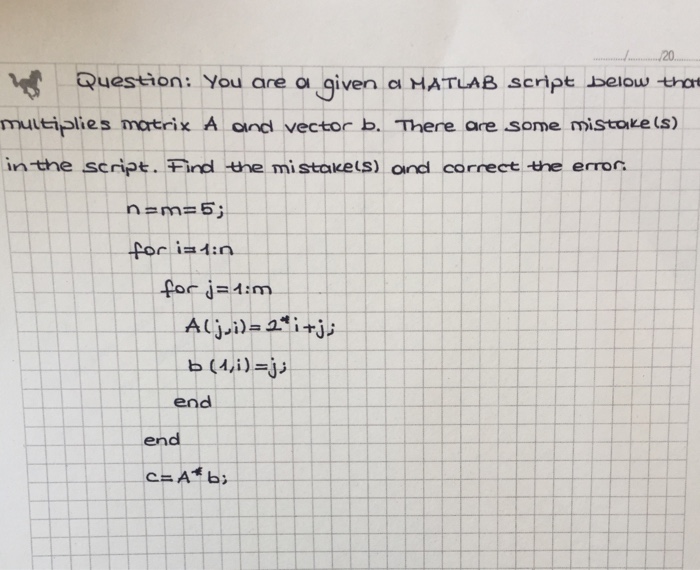 / /20
Question: You are a given a MATLAB script below that
multiplies matrix A and vector b. There are some mistake(s)
in the script. Find the mistake(s) and correct the error.
n=m=5;
for i=1:n
for j=1:m
A(j,i)=2*i+j;
b(1,i)=j;
end
end
c=A*b;